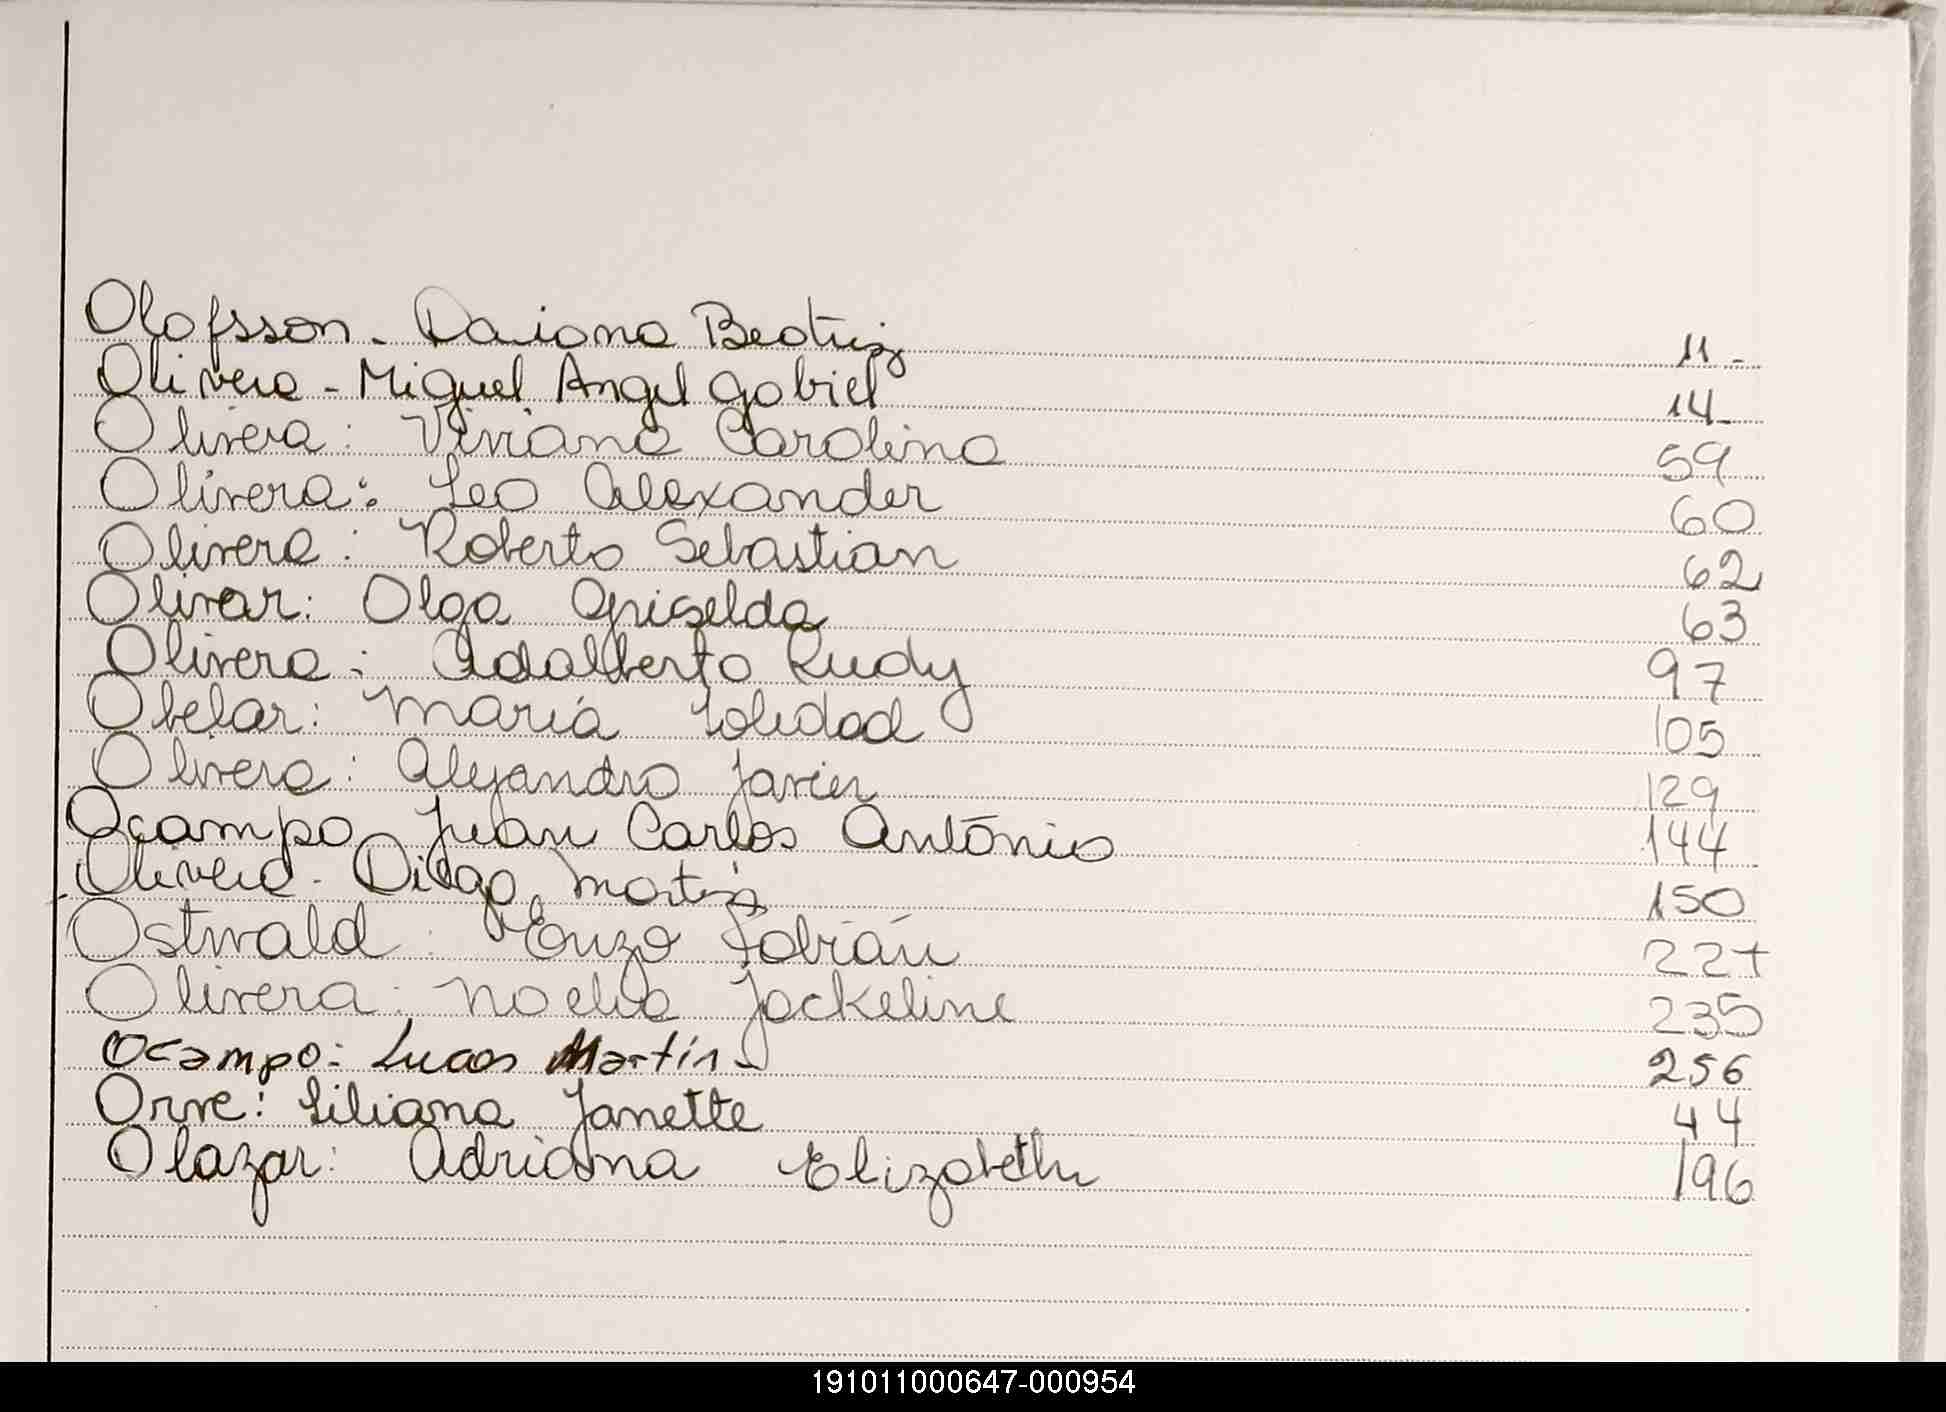 Olofsson - Daiana Beatriz 11 -
Olivera - Miguel Angel Gabriel 14 -
Olivera: Viviana Carolina 59
Olivera: Leo Alexander 60
Olivera: Roberto Sebastian 62
Olivar: Olga Griselda 63
Olivera: Adalberto Rudy 97
Obelar: María Soledad 105
Olivera: Alejandro Javier 129
Ocampo Juan Carlos António 144
Olivera - Diego Martín 150
Ostwald: Enzo Fabián 227
Olivera: Noelia Jackeline 235
Ocampo: Lucas Martín - 256
Orre: Liliana Janette 44
Olazar: Adriana Elizabeth 196
191011000647-000954